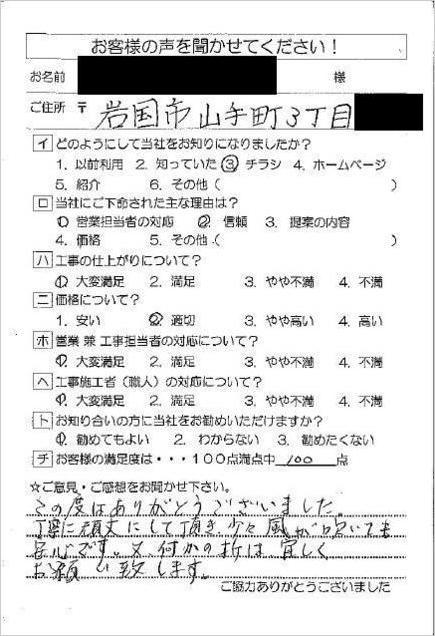 お客様の声を聞かせてください！
お名前 様
ご住所 〒 岩国市山手町3丁目
イ どのようにして当社をお知りになりましたか？
1. 以前利用 2. 知っていた ③ チラシ 4. ホームページ
5. 紹介 6. その他（ ）
ロ 当社にご下命された主な理由は？
① 営業担当者の対応 ② 信頼 3. 提案の内容
4. 価格 5. その他（ ）
ハ 工事の仕上がりについて？
① 大変満足 2. 満足 3. やや不満 4. 不満
ニ 価格について？
1. 安い ② 適切 3. やや高い 4. 高い
ホ 営業 兼 工事担当者の対応について？
① 大変満足 2. 満足 3. やや不満 4. 不満
ヘ 工事施工者（職人）の対応について？
① 大変満足 2. 満足 3. やや不満 4. 不満
ト お知り合いの方に当社をお勧めいただけますか？
① 勧めてもよい 2. わからない 3. 勧めたくない
チ お客様の満足度は・・・１００点満点中 100 点
☆ご意見・ご感想をお聞かせ下さい。
この度はありがとうございました。
丁寧に頑丈にして頂き少々風が吹いても
安心です。又、何かの折は宜しく
お願い致します。
ご協力ありがとうございました